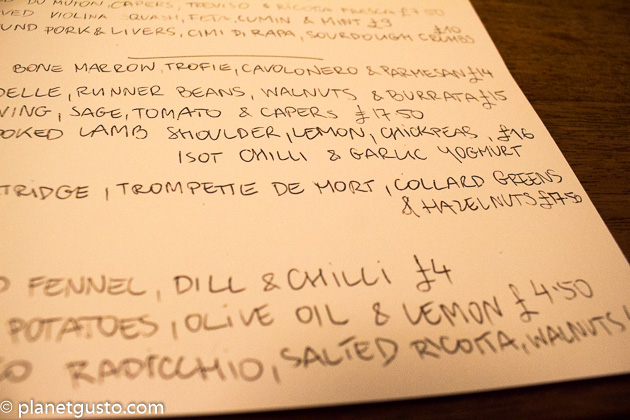 DU MUTON, CAPERS, TREVISO & RICOTTA FRESCA £7.50
VED VIOLINA SQUASH, FETA, CUMIN & MINT £9
UND PORK & LIVERS, CIMI DI RAPA, SOURDOUGH CRUMBS £10
BONE MARROW, TROFIE, CAVOLONERO & PARMESAN £14
DELLE, RUNNER BEANS, WALNUTS & BURRATA £15
WING, SAGE, TOMATO & CAPERS £17.50
OOKED LAMB SHOULDER, LEMON, CHICKPEAS, £16
ISOT CHILLI & GARLIC YOGHURT
TRIDGE, TROMPETTE DE MORT, COLLARD GREENS
& HAZELNUTS £17.50
D FENNEL, DILL & CHILLI £4
POTATOES, OLIVE OIL & LEMON £4.50
CO RADICCHIO, SALTED RICOTTA, WALNUTS
© planetgusto.com